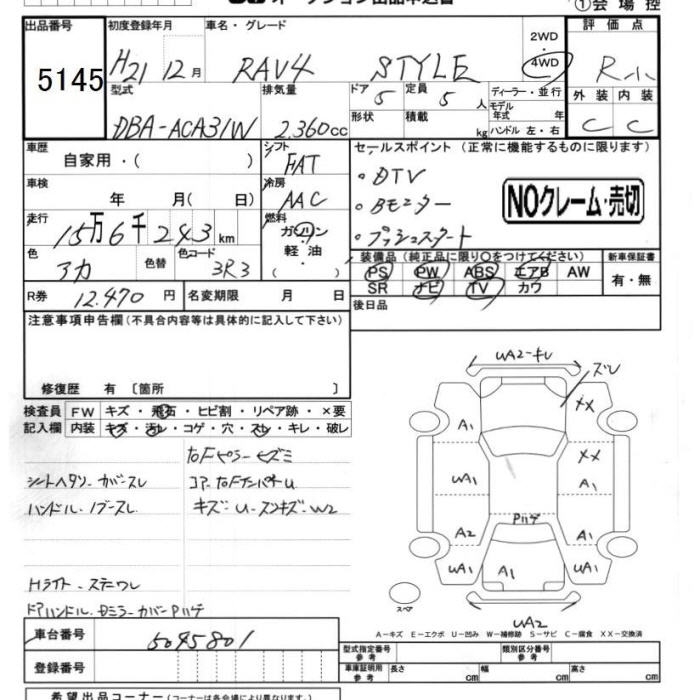 ①会場控
出品番号 初度登録年月 車名・グレード 2WD 評価点
5145 H21 12月 RAV4 STYLE 4WD R小
型式 排気量 ドア 定員 ディーラー・並行 外装 内装
DBA-ACA31W 2.360cc 5 5人 モデル年式 年 C C
形状 積載 kg ハンドル 左・右
車歴 シフト セールスポイント (正常に機能するものに限ります)
自家用・( ) FAT
・DTV
車検 冷房
年 月( 日) AAC ・Bモニター NOクレーム・売切
走行 燃料
15万6千243km ガソリン ・プッシュスタート
色 色替 色コード 軽油 装備品(純正品に限り○をつけてください) 新車保証書
アカ 3R3 ( ) PS PW ABS エアB AW 有・無
R券 12.470円 名変期限 月 日 SR ナビ TV カワ
後日品
注意事項申告欄(不具合内容等は具体的に記入して下さい)
修復歴 有 〔箇所 〕
検査員 FW キズ・飛石・ヒビ割・リペア跡・×要
記入欄 内装 キズ・汚レ・コゲ・穴・スレ・キレ・破レ
シートヘタリ・カバースレ
ハンドル・ノブスレ
キズ・U・スンキズ・W2
Hライト・ステーワレ
ドアハンドル・Dミラーカバー Pハゲ
UA2-キレ
ズレ
A1 XX
XX
UA1 A1
Pハゲ
A2 A1
UA1 A1 UA1
スペア
UA2
A―キズ E―エクボ U―凹み W―補修跡 S―サビ C―腐食 XX―交換済
車台番号 5045801
登録番号
型式指定番号 参考 類別区分番号 参考
車庫証明用 参考 長さ cm 幅 cm 高さ cm
希望出品コーナー(コーナーは各会場により異なります)